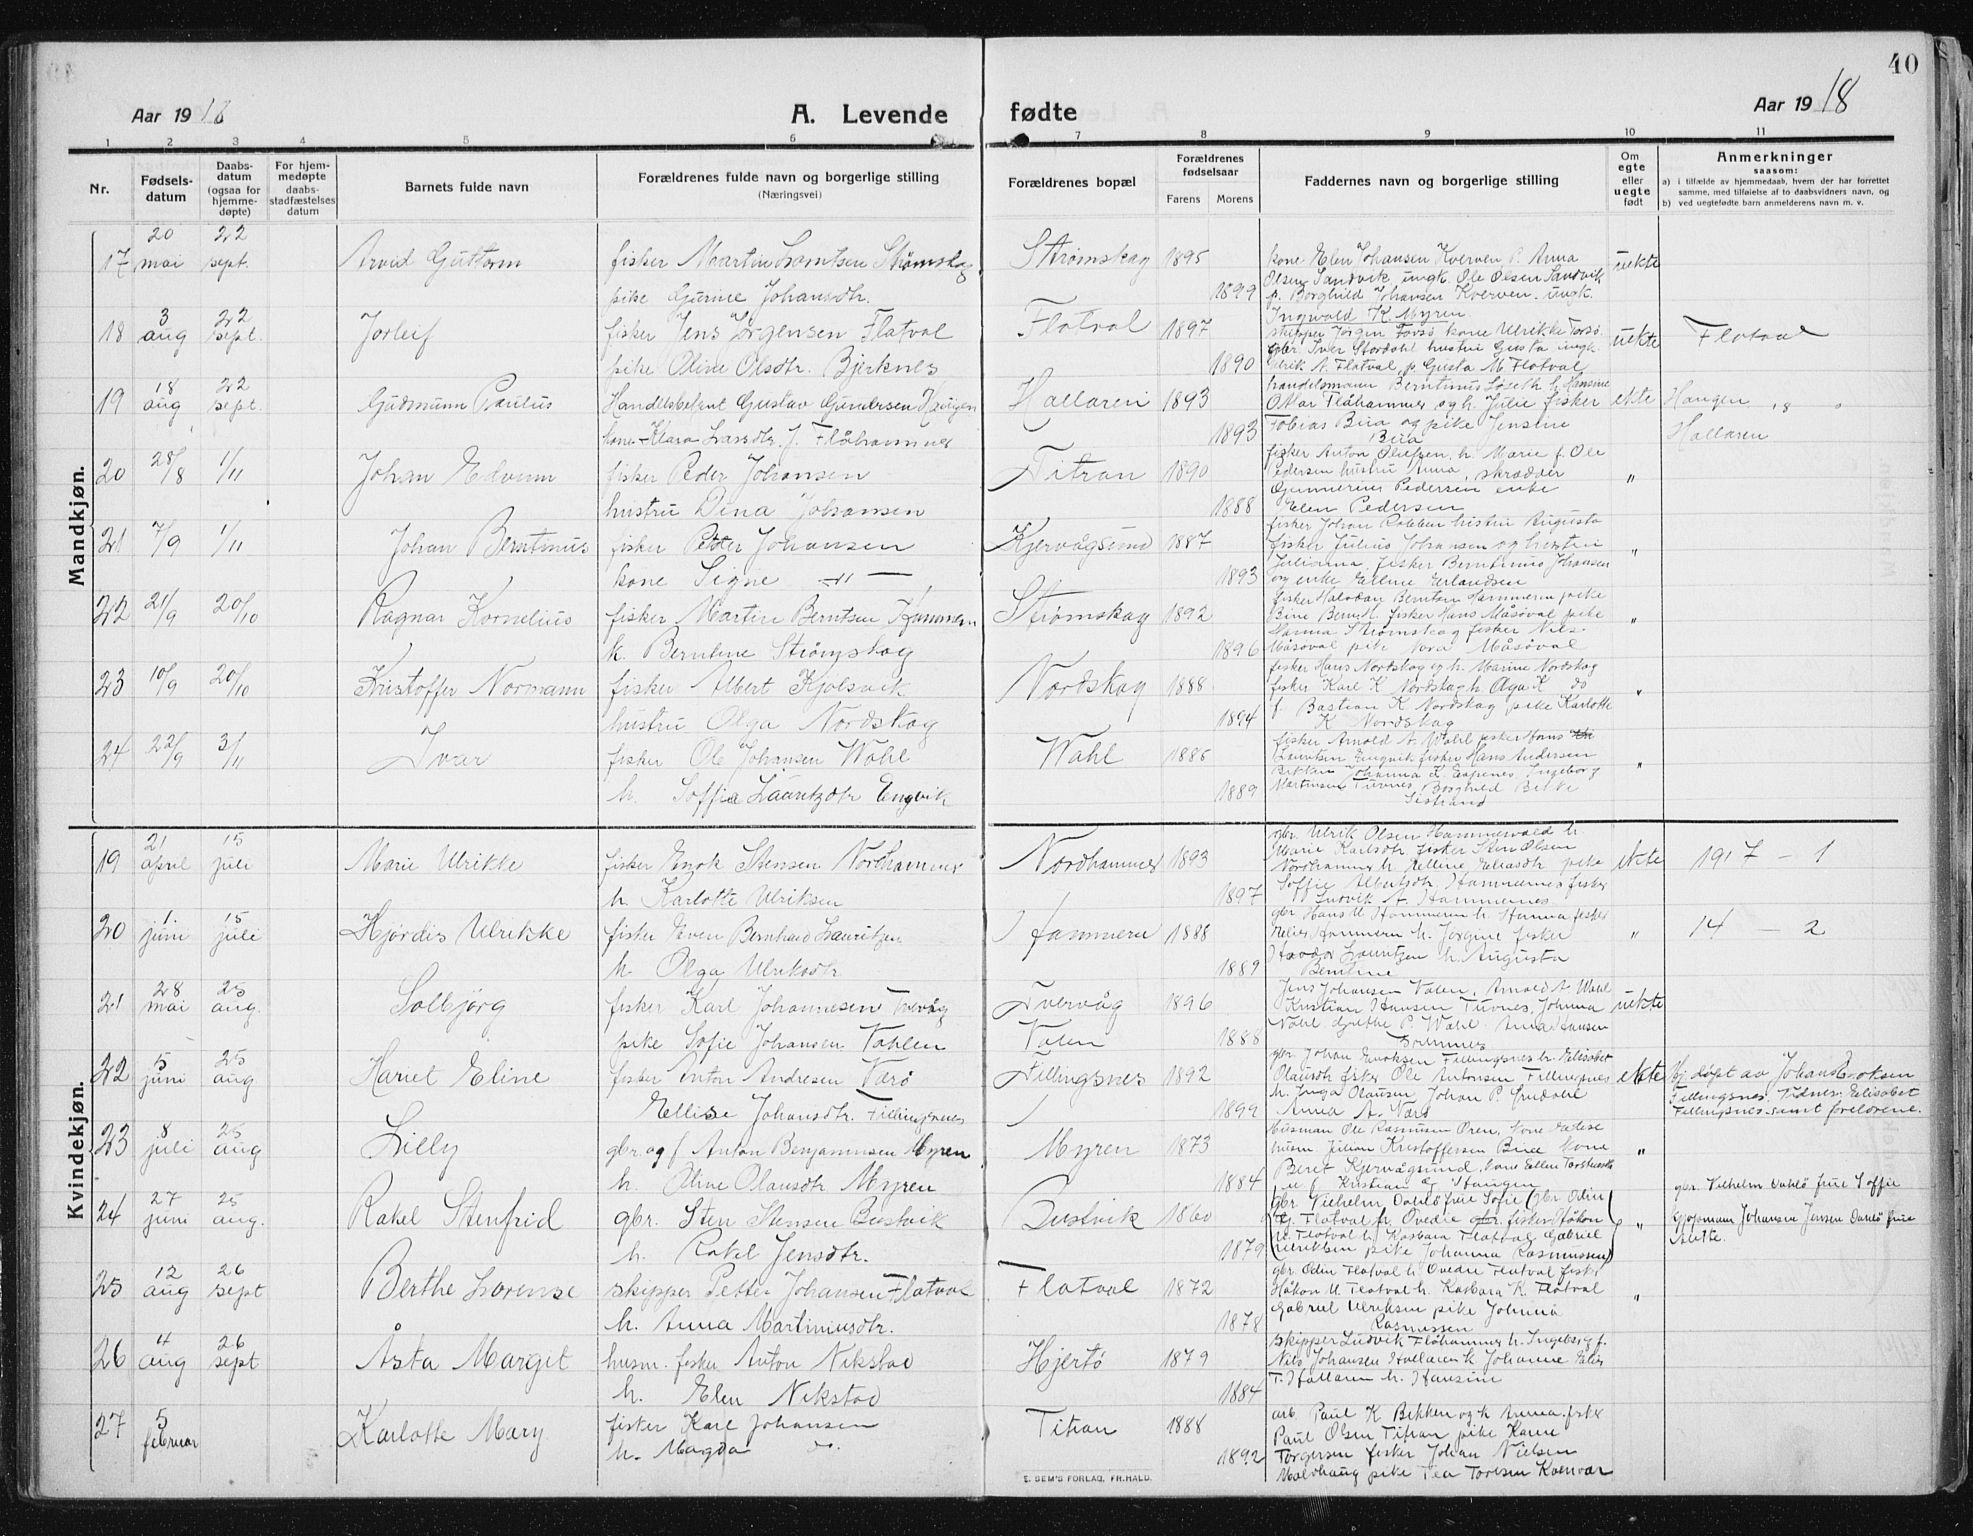 40
Aar 1918 A. Levende fødte Aar 1918
1 2 3 4 5 6 7 8 9 10 11
Nr. Fødselsdatum Daabsdatum (ogsaa for hjemmedøpte) For hjemmedøpte daabsstadfæstelses datum Barnets fulde navn Forældrenes fulde navn og borgerlige stilling (Næringsvei) Forældrenes bopæl Forældrenes fødselsaar Farens Morens Faddernes navn og borgerlige stilling Om egte eller uegte født Anmerkninger saasom: a) i tilfælde av hjemmedaab, hvem der har forrettet samme, med tilføielse af to daabsvidners navn, og b) ved uegtefødte barn anmelderens navn m. v.
Mandkjøn.
17 20 mai 22 sept. Arvid Guttorm fisker Martin Strømskag Strømskag 1895 kone Elen Johansen Kverven p. Anna uekte
pike Gurine Johansdtr. 1899 Olsen Sandvik ungk. Ole Olsen Sandvik
p. Borghild Johansen Kverven. ungk.
Ingvald K. Myren
18 3 aug 22 sept. Jorleif fisker Jens Jørgensen Flatval Flatval 1897 skipper Jørgen kone Ulrikke uekte Flatval
gbr. Iver Stordahl hustru Gusta ungk.
pike Oline Olsdtr. Bjerknes 1890 Ulrik A. Flatval, p. Gusta M Flatval
19 18 aug 22 sept. Gudmunn Paulus Handelsbetjent Gustav Gundersen Haugen Hallaren 1893 handelsmann Berntinus h. Hansine ekte Haugen
Oskar Flåhammer og h. Julie fisker
kone Klara Larsdtr. f. Flåhammer 1893 Tobias og pike Jensine Hallaren
20 28/8 1/11 Johan Edvinn fisker Peder Johansen Titran 1890 fisker Anton Olufsen, h. Marie f. Ole "
Pedersen hustru Anna, skrædder
Pedersen enke
hustru Dina Johansen 1888 Elen Pedersen
21 7/9 1/11 Johan Berntinus fisker Petter Johansen Kjervågsund 1887 fisker Johan Robben hustru Augusta "
fisker Julius Johansen og hustru
kone Signe —"— 1893 Julianna, fisker Berntinus Johansen
og enke Eline Erlandsen
22 21/9 20/10 Ragnar Kornelius fisker Martin Berntsen Hammern Strømskag 1892 fisker Halvdan Berntsen Hammern pike "
fisker Hans Måsøval pike
k. Berntine Strømskag 1896 Hanna Strømskag fisker Nils
Måsøval pike Nora Måsøval
23 10/9 20/10 Kristoffer Normann fisker Albert Kjølsvik Nordskag 1888 fisker Hans Nordskag og h. Marine Nordskag "
fisker Karl K Nordskag h. Olga K do
hustru Olga Nordskag 1894 f. Bastian K Nordskag pike Karlotte
K Nordskag
24 22/9 3/11 Ivar fisker Ole Johansen Wahl Wahl 1886 fisker Arnold A. Wahl fisker "
Lauritsen Engvik fisker Hans Andersen
Bekken Johanna Ingeborg
h. Soffie Lauritzdtr Engvik 1889 Martinsen Tuvnes, Borghild
Sistrand
Kvindekjøn.
19 21 april 15 juli Marie Ulrikke fisker Enok Stensen Nordhammer Nordhammer 1893 gbr. Ulrik Olsen Hammervold h. ekte 1917 – 1
Marie Karlsdtr fisker Sten Olsen
Nordhammer h Elline Eliasdtr pike
h. Karlotte Ulriksen 1897 Soffie Albertsdtr. Hammernes fisker
Ludvik A. Hammernes.
20 1. juni 15 juli Hjørdis Ulrikke fisker Even Bernhard Lauritzen Hammern 1888 gbr. Hans U Hammern h. fisker " 14 – 2
Hammern h. Jørgine fisker
h. Olga Ulriksdtr 1889 Lauritzen h. Augusta
Berntine
21 28 mai 25 aug. Solbjørg fisker Karl Johannesen Tvervåg Tvervåg 1896 Jens Johansen Valen, Arnold A Wahl uekte
Kristian Hansen Tuvnes, Johnna
pike Sofie Johansen Vahlen Valen 1888 Wahl. Grethe P. Wahl. Anna Hansen
22 5 juni 25 aug Hariet Eline fisker Anton Andresen Varø Fillingsnes 1892 gbr Johan Enoksen Fillingsnes h. Elisabet ekte Hj. døpt av Johan Enoksen
Olausdtr fisker Ole Antonsen Fillingsnes
Fillingsnes. Vidner: Elisabet
Ellise Johansdtr. Fillingsnes 1899 h. Inga Olausen, Johan P.
Anna A. Varø Fillingsnes samt forældrene.
23 8 juli 25 aug Lilly gbr. og f. Anton Benjaminsen Myren Myren 1873 Husman Ole Rasmussen Ören, kone "
husm Julian Kristoffersen kone
h. Oline Olausdtr Myren 1884 Beret Kjervågsund, kone Ellen
f Kristian Haugen
24 27 juni 25 aug. Rakel Stenfrid gbr. Sten Stensen Bustvik Bustvik 1860 gbr Vilhelm Dahlø frue Sofie (gbr. Odin " gbr. Vilhelm Dahlø frue Soffie
Flatval fr. Ovedie gbr. fisker Håkon Kjøpmann Johansen Jensen Dahlø frue
h. Rakel Jensdtr. 1879 Flatval h. Kasbara Flatval Gabriel
Ulriksen pike Johanna Rasmussen)
25 12 aug 26 sept Berthe Lorense skipper Petter Johansen Flatval Flatval 1872 gbr. Odin Flatval h. Ovedie Flatval fisk. "
Håkon U. Flatval h. Kasbara K. Flatval
h. Anna Martiniusdtr. 1878 Gabriel Ulriksen pike Johnna
Rasmussen
26 4 aug 26 sept Åsta Margit husm. fisker Anton Nikstad Hjertø 1879 skipper Ludvik Flåhammer h. Ingeborg f.
Nils Johansen Hallaren k Johanne
h. Elen Nikstad 1884 Hallaren h. Hansine
27 5 februar Karlotte Mary fisker Karl Johansen Titran 1888 arb. Paul K Bekken og h Anna. fisker
Paul Olsen Titran pike Karen
h. Magda do. 1892 Torgersen fisker Johan Nielsen
pike Tea Kvervar
E. SEM'S FORLAG, FR.HALD.